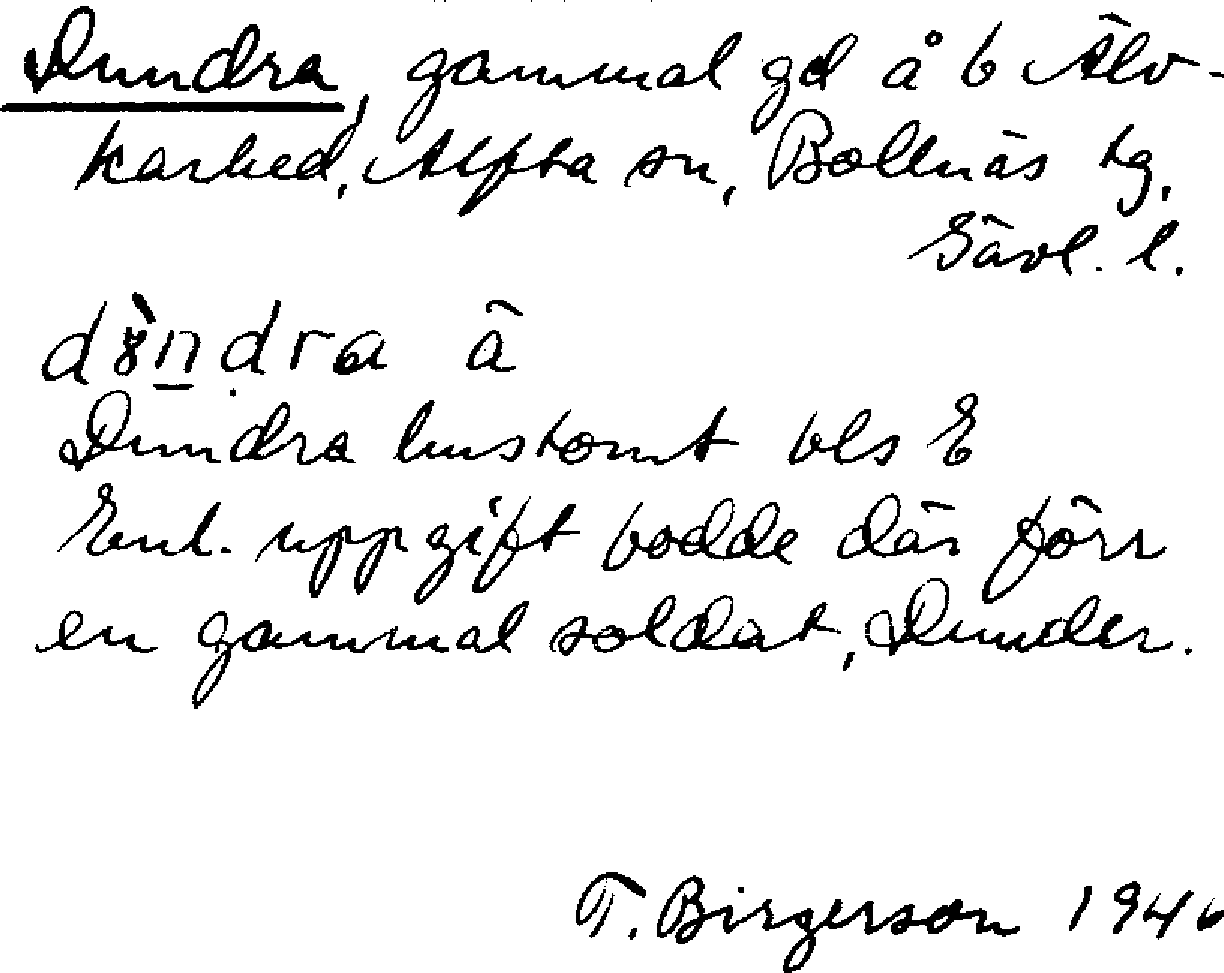 Dundra, gammal gd å b Älv-
karhed, Alfta sn, Bollnäs tg,
Gävl. l.
dȣ̀ndra ä
Dundra hustomt bls E
Enl. uppgift bodde där förr
en gammal soldat, Dunder.
T. Birgerson 1946